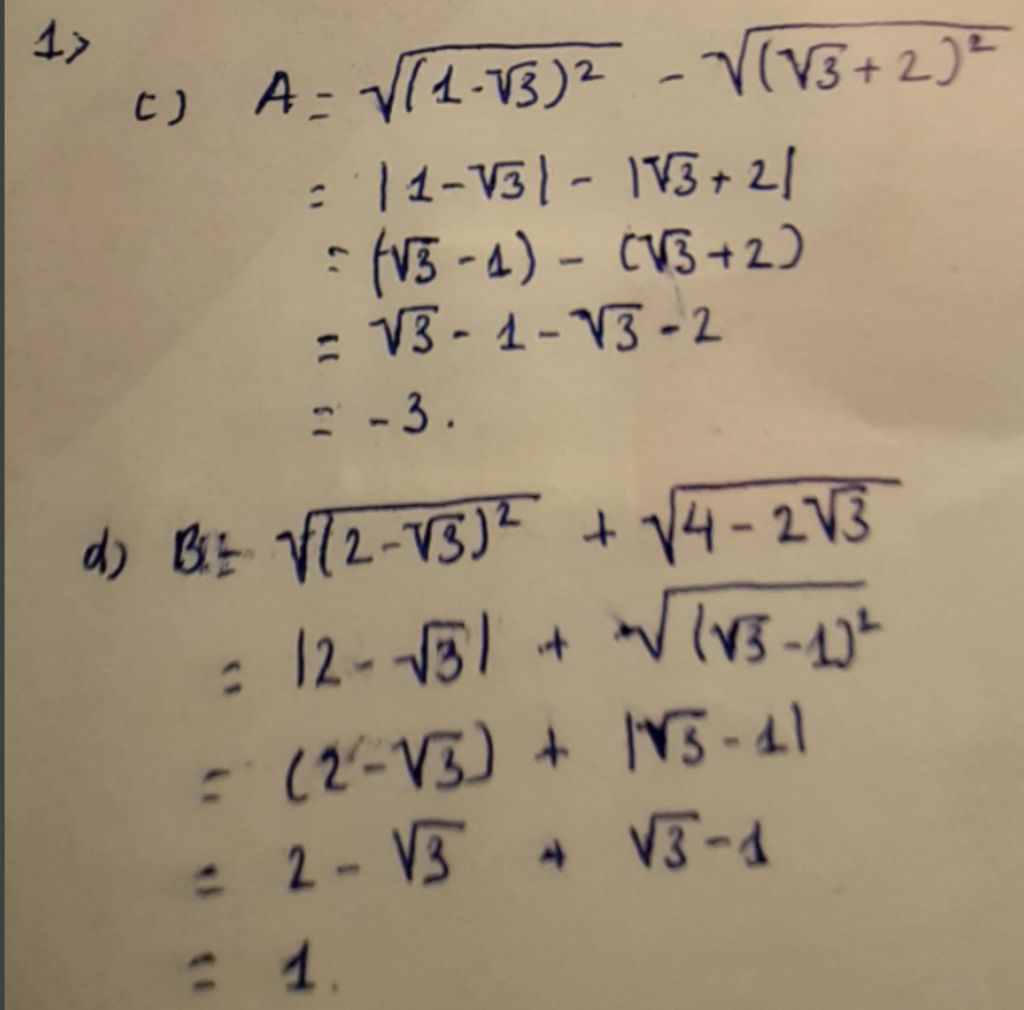 1>
c) A = √(1-√3)² - √(√3+2)²
= |1-√3| - |√3+2|
= (√3-1) - (√3+2)
= √3 - 1 - √3 - 2
= -3.
d) B = √(2-√3)² + √4-2√3
= |2-√3| + √(√3-1)²
= (2-√3) + |√3-1|
= 2 - √3 + √3-1
= 1.